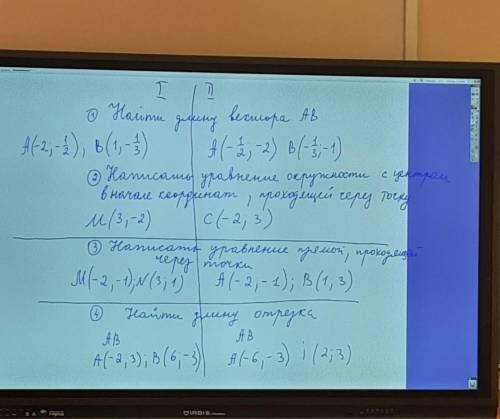 I II
① Найти длину вектора AB
A(-2,-1/2), B(1,-1/3) A(-1/2,-2) B(-1/3,-1)
② Написать уравнение окружности с центром
в начале координат, проходящей через точку
M(3,-2) C(-2,3)
③ Написать уравнение прямой, проходящей
через точки
M(-2,-1);N(3;1) A(-2,-1); B(1,3)
④ Найти длину отрезка
AB AB
A(-2,3); B(6,-3) A(-6,-3) i (2;3)